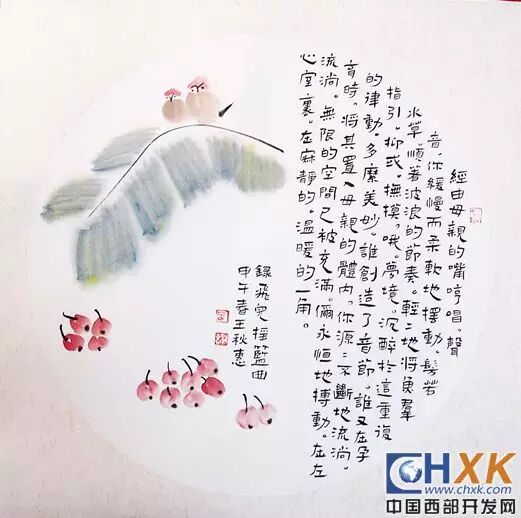 經由母親的嘴哼唱。聲
音。你緩慢而柔軟地擺動。髣若
水草。順著波浪的節奏。輕二地將魚羣
指引。抑或。撫摸。哦。夢境。沉醉於這重復
的律動。多麼美妙。誰創造了音節。誰又在孕
育時。將其置入母親的體內。你源二不斷地流淌。
流淌。無限的空間已被充滿。儞永恒地搏動。在左
心室裏。在寂靜的。溫暖的一角。
錄飛兒搖籃曲
甲午春王秋惠
CHXK
www.chxk.com
中国西部开发网